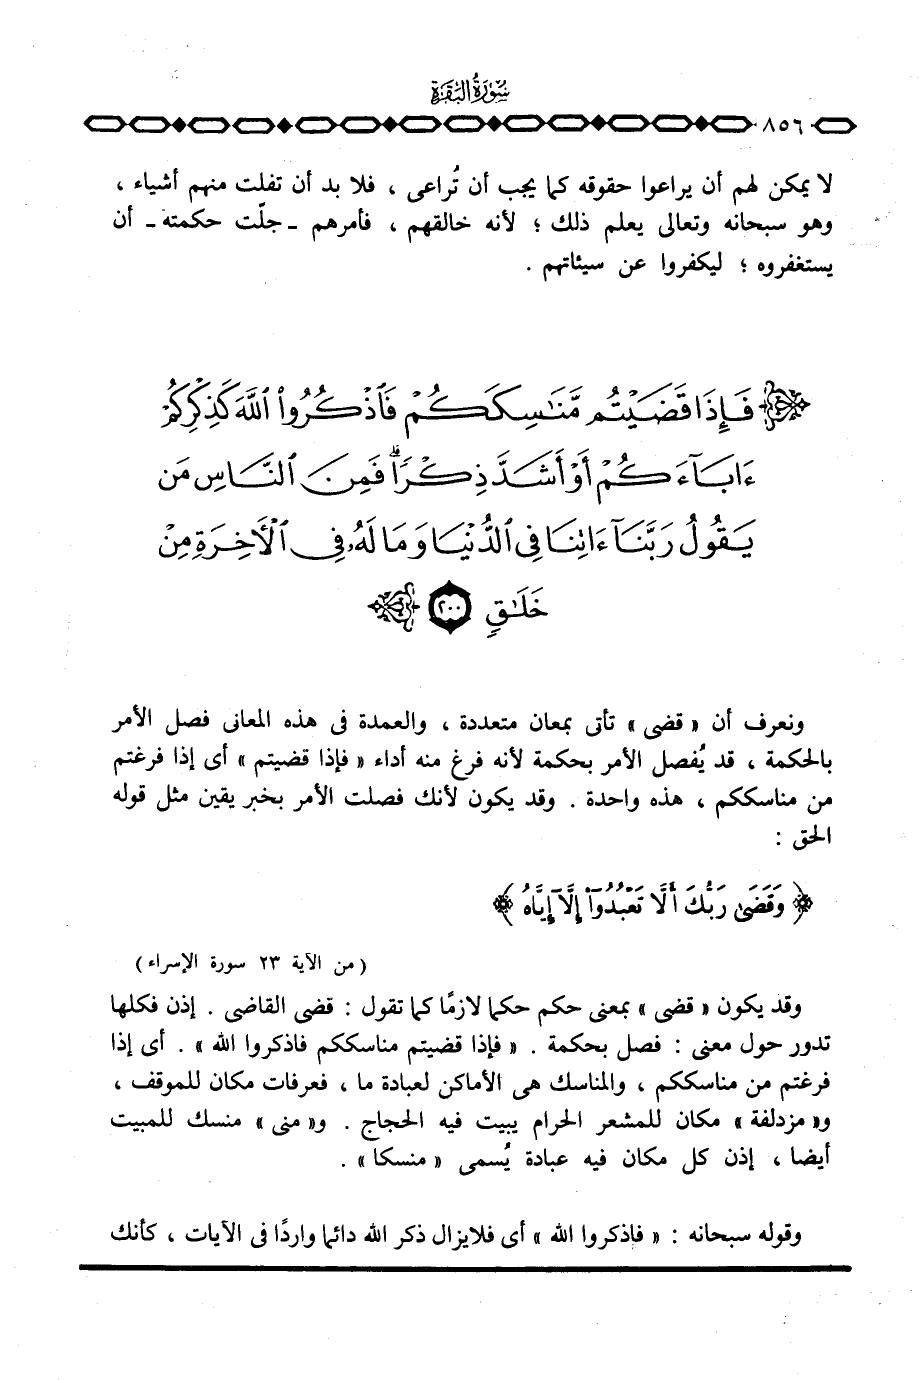 سُورَةُ البَقَرَةِ
٨٥٦
لا يمكن لهم أن يراعوا حقوقه كما يجب أن تُراعى ، فلا بد أن تفلت منهم أشياء ،
وهو سبحانه وتعالى يعلم ذلك ؛ لأنه خالقهم ، فأمرهم ـ جلّت حكمته ـ أن
يستغفروه ؛ ليكفروا عن سيئاتهم .
فَإِذَا قَضَيْتُم مَّنَٰسِكَكُمْ فَٱذْكُرُوا۟ ٱللَّهَ كَذِكْرِكُمْ
ءَابَآءَكُمْ أَوْ أَشَدَّ ذِكْرًا ۗ فَمِنَ ٱلنَّاسِ مَن
يَقُولُ رَبَّنَآ ءَاتِنَا فِى ٱلدُّنْيَا وَمَا لَهُۥ فِى ٱلْأَخِرَةِ مِنْ
خَلَٰقٍ ٢٠٠
ونعرف أن « قضى » تأتى بمعان متعددة ، والعمدة فى هذه المعانى فصل الأمر
بالحكمة ، قد يُفصل الأمر بحكمة لأنه فرغ منه أداء « فإذا قضيتم » أى إذا فرغتم
من مناسككم ، هذه واحدة . وقد يكون لأنك فصلت الأمر بخبر يقين مثل قوله
الحق :
﴿ وَقَضَىٰ رَبُّكَ أَلَّا تَعْبُدُوٓا۟ إِلَّآ إِيَّاهُ ﴾
( من الآية ٢٣ سورة الإسراء )
وقد يكون « قضى » بمعنى حكم حكما لازمًا كما تقول : قضى القاضى . إذن فكلها
تدور حول معنى : فصل بحكمة . « فإذا قضيتم مناسككم فاذكروا الله » . أى إذا
فرغتم من مناسككم ، والمناسك هى الأماكن لعبادة ما ، فعرفات مكان للموقف ،
و« مزدلفة » مكان للمشعر الحرام يبيت فيه الحجاج . و« منى » منسك للمبيت
أيضا ، إذن كل مكان فيه عبادة يُسمى « منسكا » .
وقوله سبحانه : « فإذكروا الله » أى فلايزال ذكر الله دائما واردًا فى الآيات ، كأنك